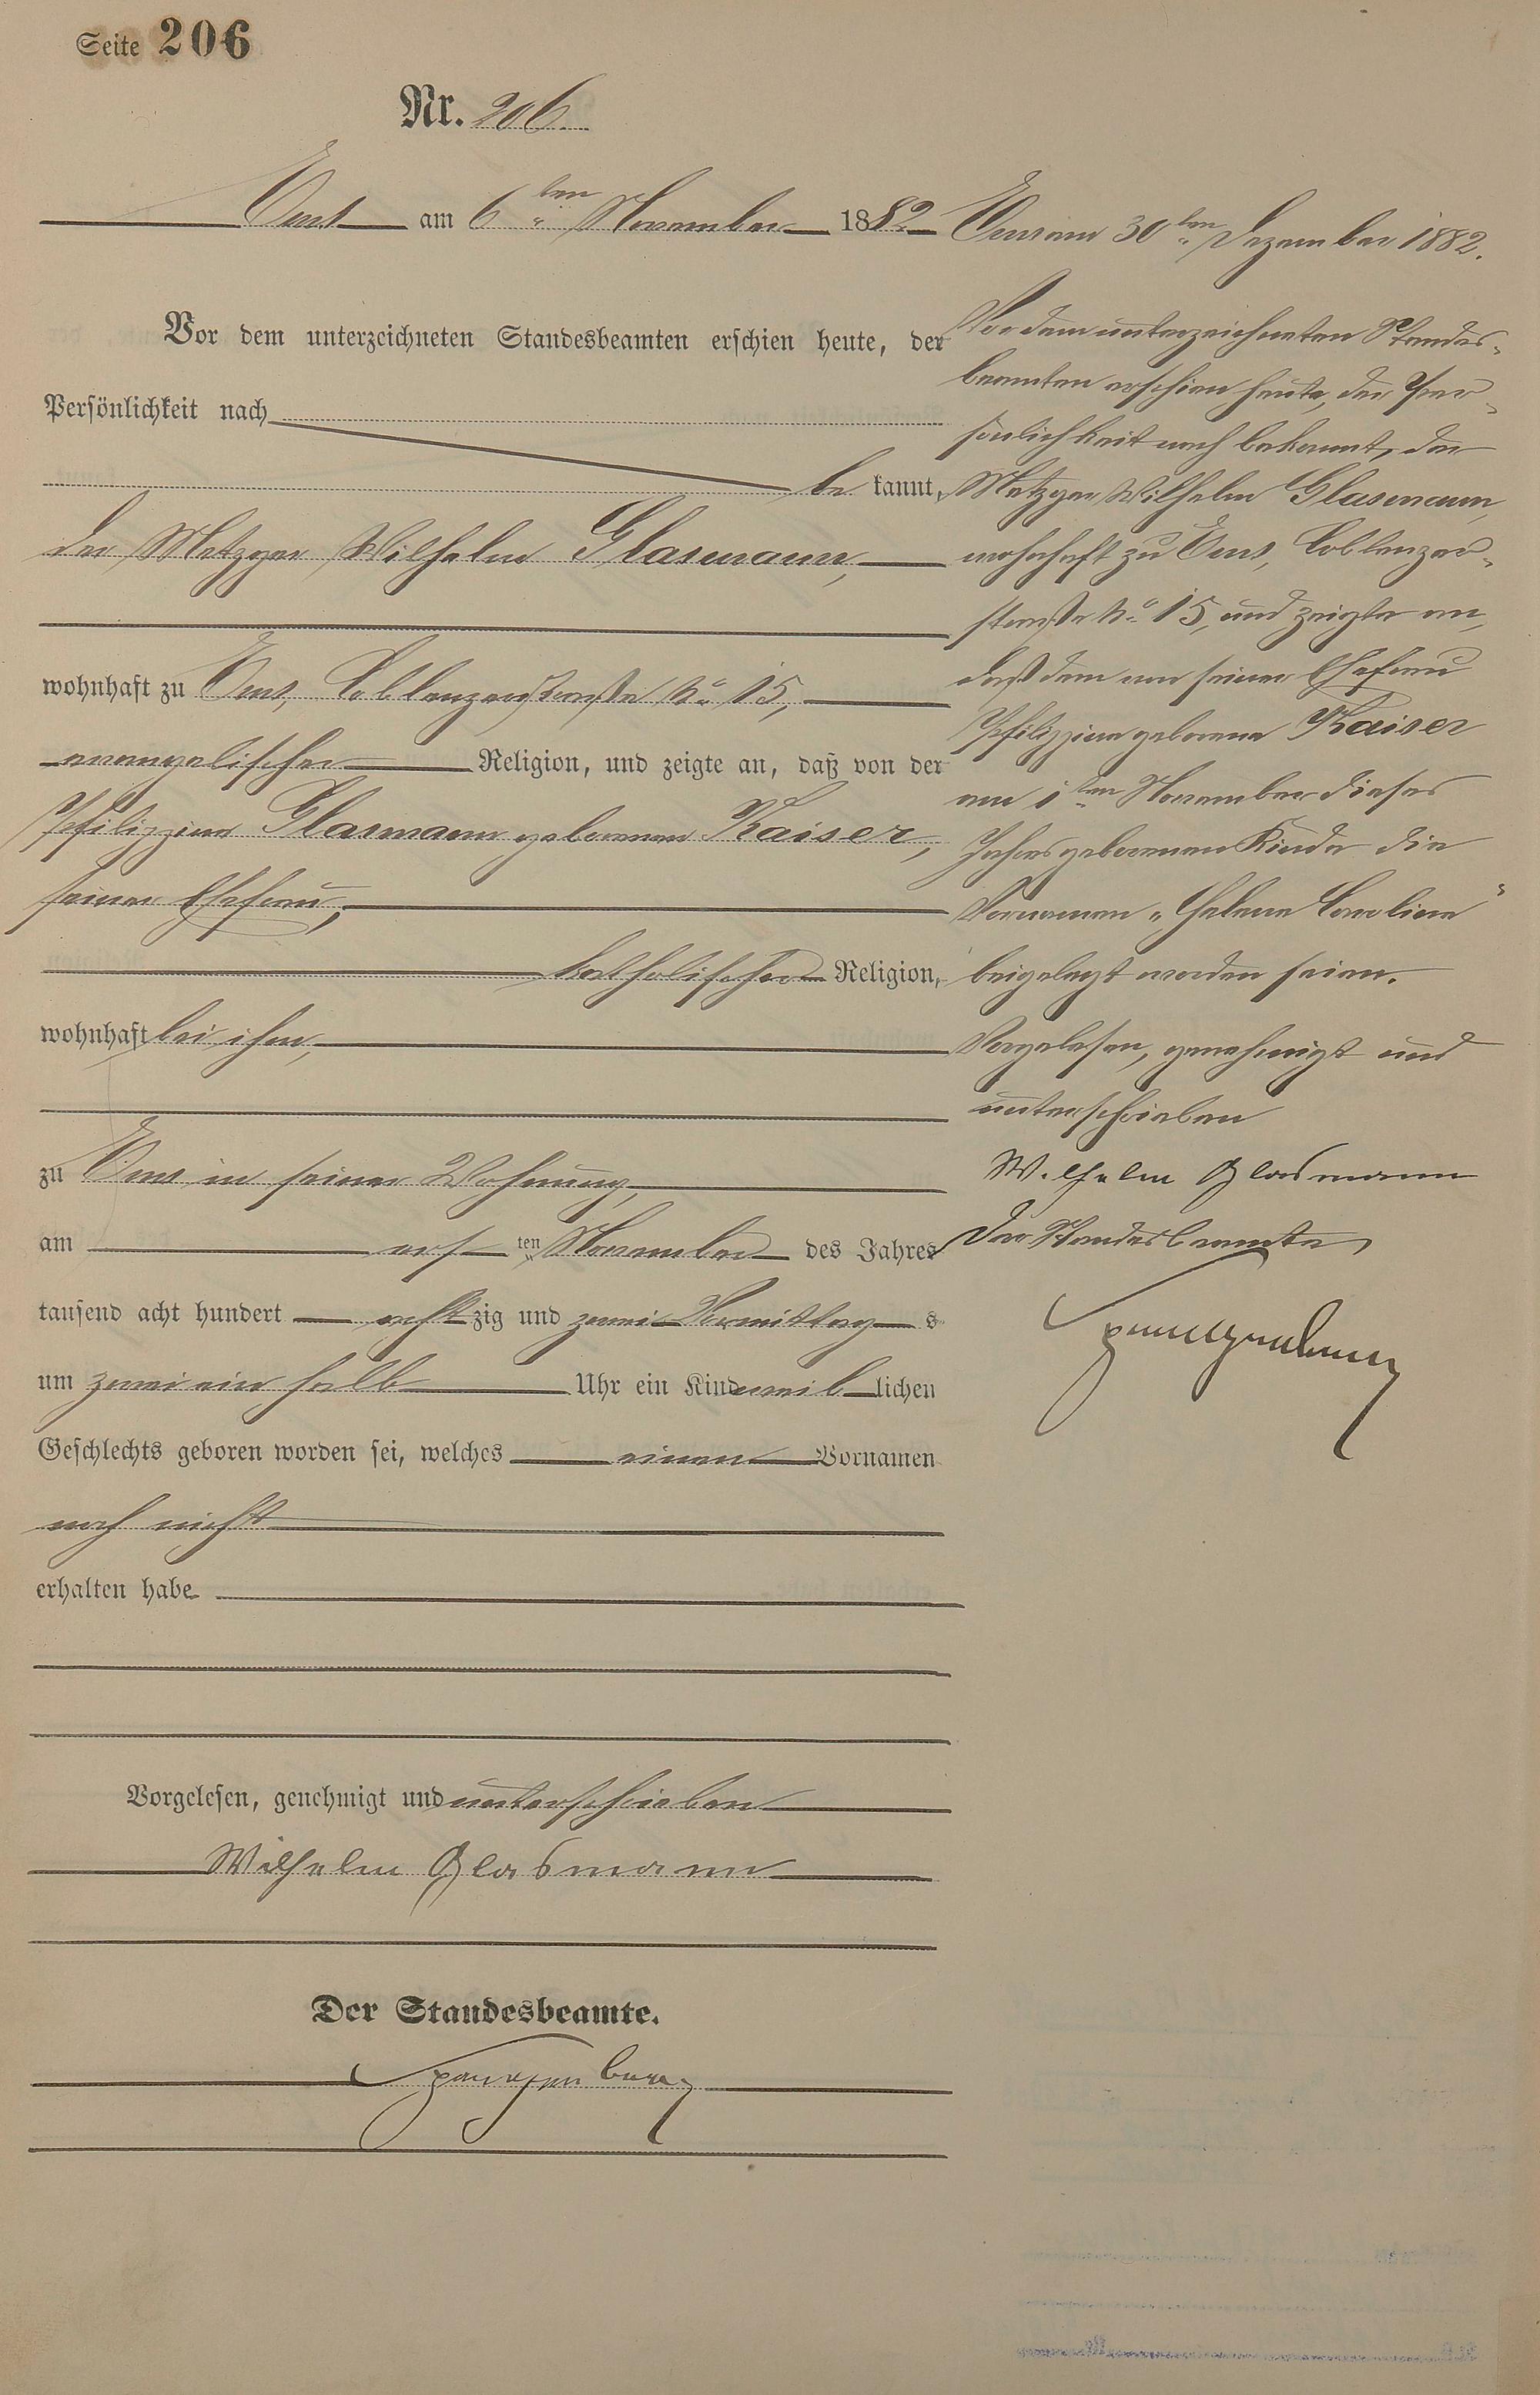 Seite 206
Nr. 206.
Ems am 6ten November 1882
Vor dem unterzeichneten Standesbeamten erschien heute, der
Persönlichkeit nach
be kannt,
der Metzger Wilhelm Glasmann,
wohnhaft zu Ems, Coblenzerstraße No 15,
evangelischer Religion, und zeigte an, daß von der
Philippine Glasmann geborenen Kaiser,
seiner Ehefrau,
katholischer Religion,
wohnhaft bei ihm,
zu Ems in seiner Wohnung,
am ersten November des Jahres
tausend acht hundert achtzig und zwei Vormittags
um zwei ein halb Uhr ein Kind weiblichen
Geschlechts geboren worden sei, welches einen Vornamen
noch nicht
erhalten habe
Vorgelesen, genehmigt und unterschrieben
Wilhelm Glasmann
Der Standesbeamte.
Spangenberg
Ems am 30ten Dezember 1882.
Vor dem unterzeichneten Standes-
beamten erschien heute, der Per-
sönlichkeit nach bekannt, der
Metzger Wilhelm Glasmann,
wohnhaft zu Ems, Coblenzer-
straße No 15, und zeigte an,
daß dem von seiner Ehefrau
Philippine geborene Kaiser
am 1ten November dieses
Jahres geborenen Kinde die
Vornamen „Helene Caroline"
beigelegt worden seien.
Vorgelesen, genehmigt und
unterschrieben
Wilhelm Glasmann
Der Standesbeamte,
Spangenberg